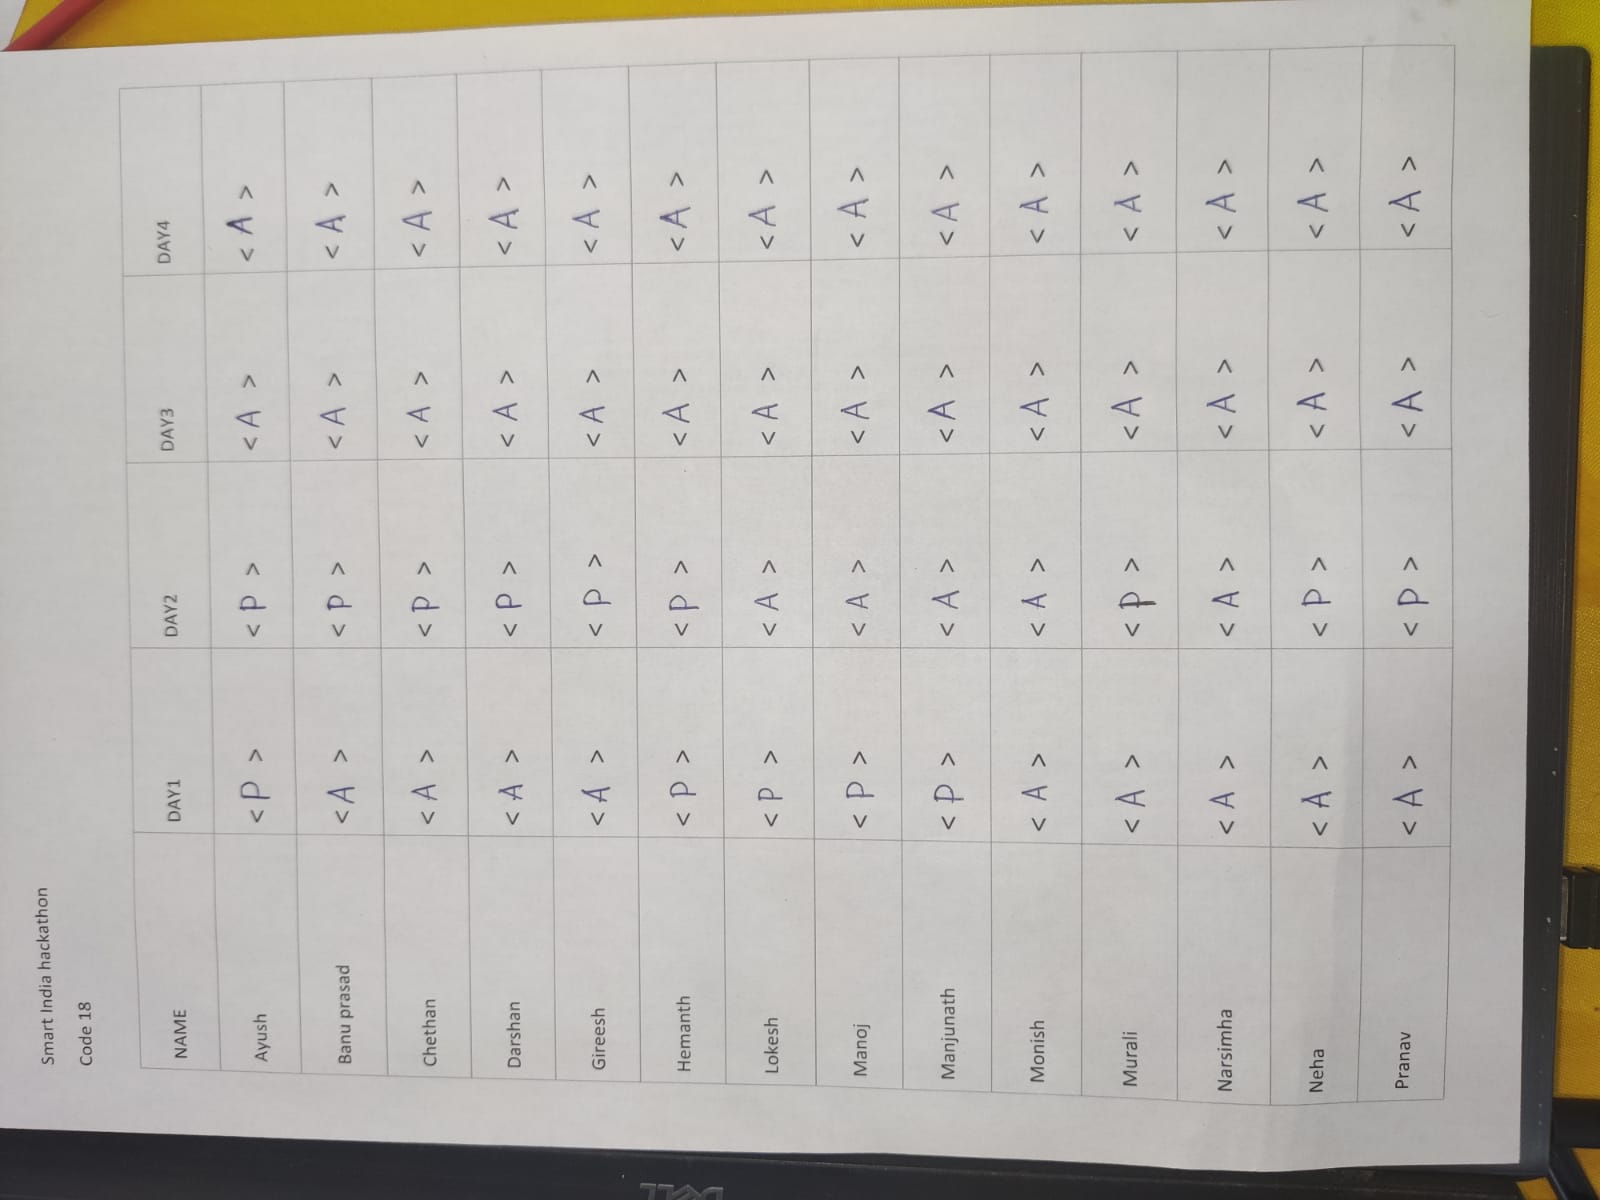 Smart India hackathon
Code 18
NAME DAY1 DAY2 DAY3 DAY4
Ayush < P > < P > < A > < A >
Banu prasad < A > < P > < A > < A >
Chethan < A > < P > < A > < A >
Darshan < A > < P > < A > < A >
Gireesh < A > < P > < A > < A >
Hemanth < P > < P > < A > < A >
Lokesh < P > < A > < A > < A >
Manoj < P > < A > < A > < A >
Manjunath < P > < A > < A > < A >
Monish < A > < A > < A > < A >
Murali < A > < P > < A > < A >
Narsimha < A > < A > < A > < A >
Neha < A > < P > < A > < A >
Pranav < A > < P > < A > < A >
DELL